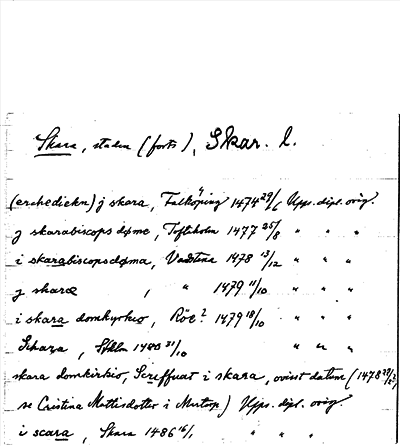 Skara, staden (forts), Skar. l.
(erchediekn) j skara, Falköping 1474 29/6 Upps. dipl. orig.
j skarabiscops døme, Toftaholm 1477 25/8 " " "
i skarabiscopsdøma, Vadstena 1478 13/12 " " "
j skaræ , " 1479 11/10 " "
i skara domkyrkio, Röe? 1479 18/10 " "
Schara, Sthlm 1480 31/10 " " "
skara domkirkio, Screffuat i skara, ovisst datum (1478
se Cristina Mattisdotter i ) Upps. dipl. orig.
i scara, Skara 1486 16/1 " " "